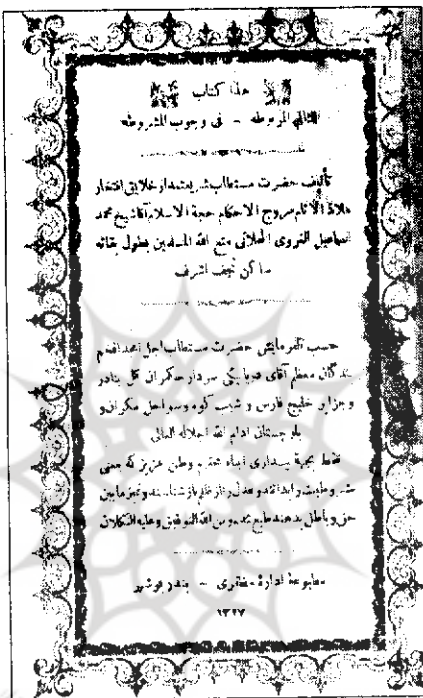 هذا کتاب
اللئالی المربوطه - فی وجوب المشروطه
تألیف حضرت مستطاب شریعتمدار خلایق افتخار
ملاذ الانام مروج الاحکام حجة الاسلام آقا شیخ محمد
اسماعیل الغروی المحلاتی متع الله المسلمین بطول بقائه
ساکن نجف اشرف
حسب الفرمایش حضرت مستطاب اجل امجد افخم
بندگان معظم آقای دریابیگی سردار حکمران کل بنادر
و جزایر خلیج فارس و شیب کوه و سواحل مکران و
بلوچستان ادام الله اجلاله العالی
فقط بجهة بیداری ابناء محترم وطن عزیز که معنی
مشروطیت را بدانند و عدل را از ظلم باز شناسند و تمیز مابین
حق و باطل بدهند طبع شد و من الله التوفیق و علیه التکلان
مطبوعهٔ ادارهٔ مظفری - بندر بوشهر
۱۳۲۷